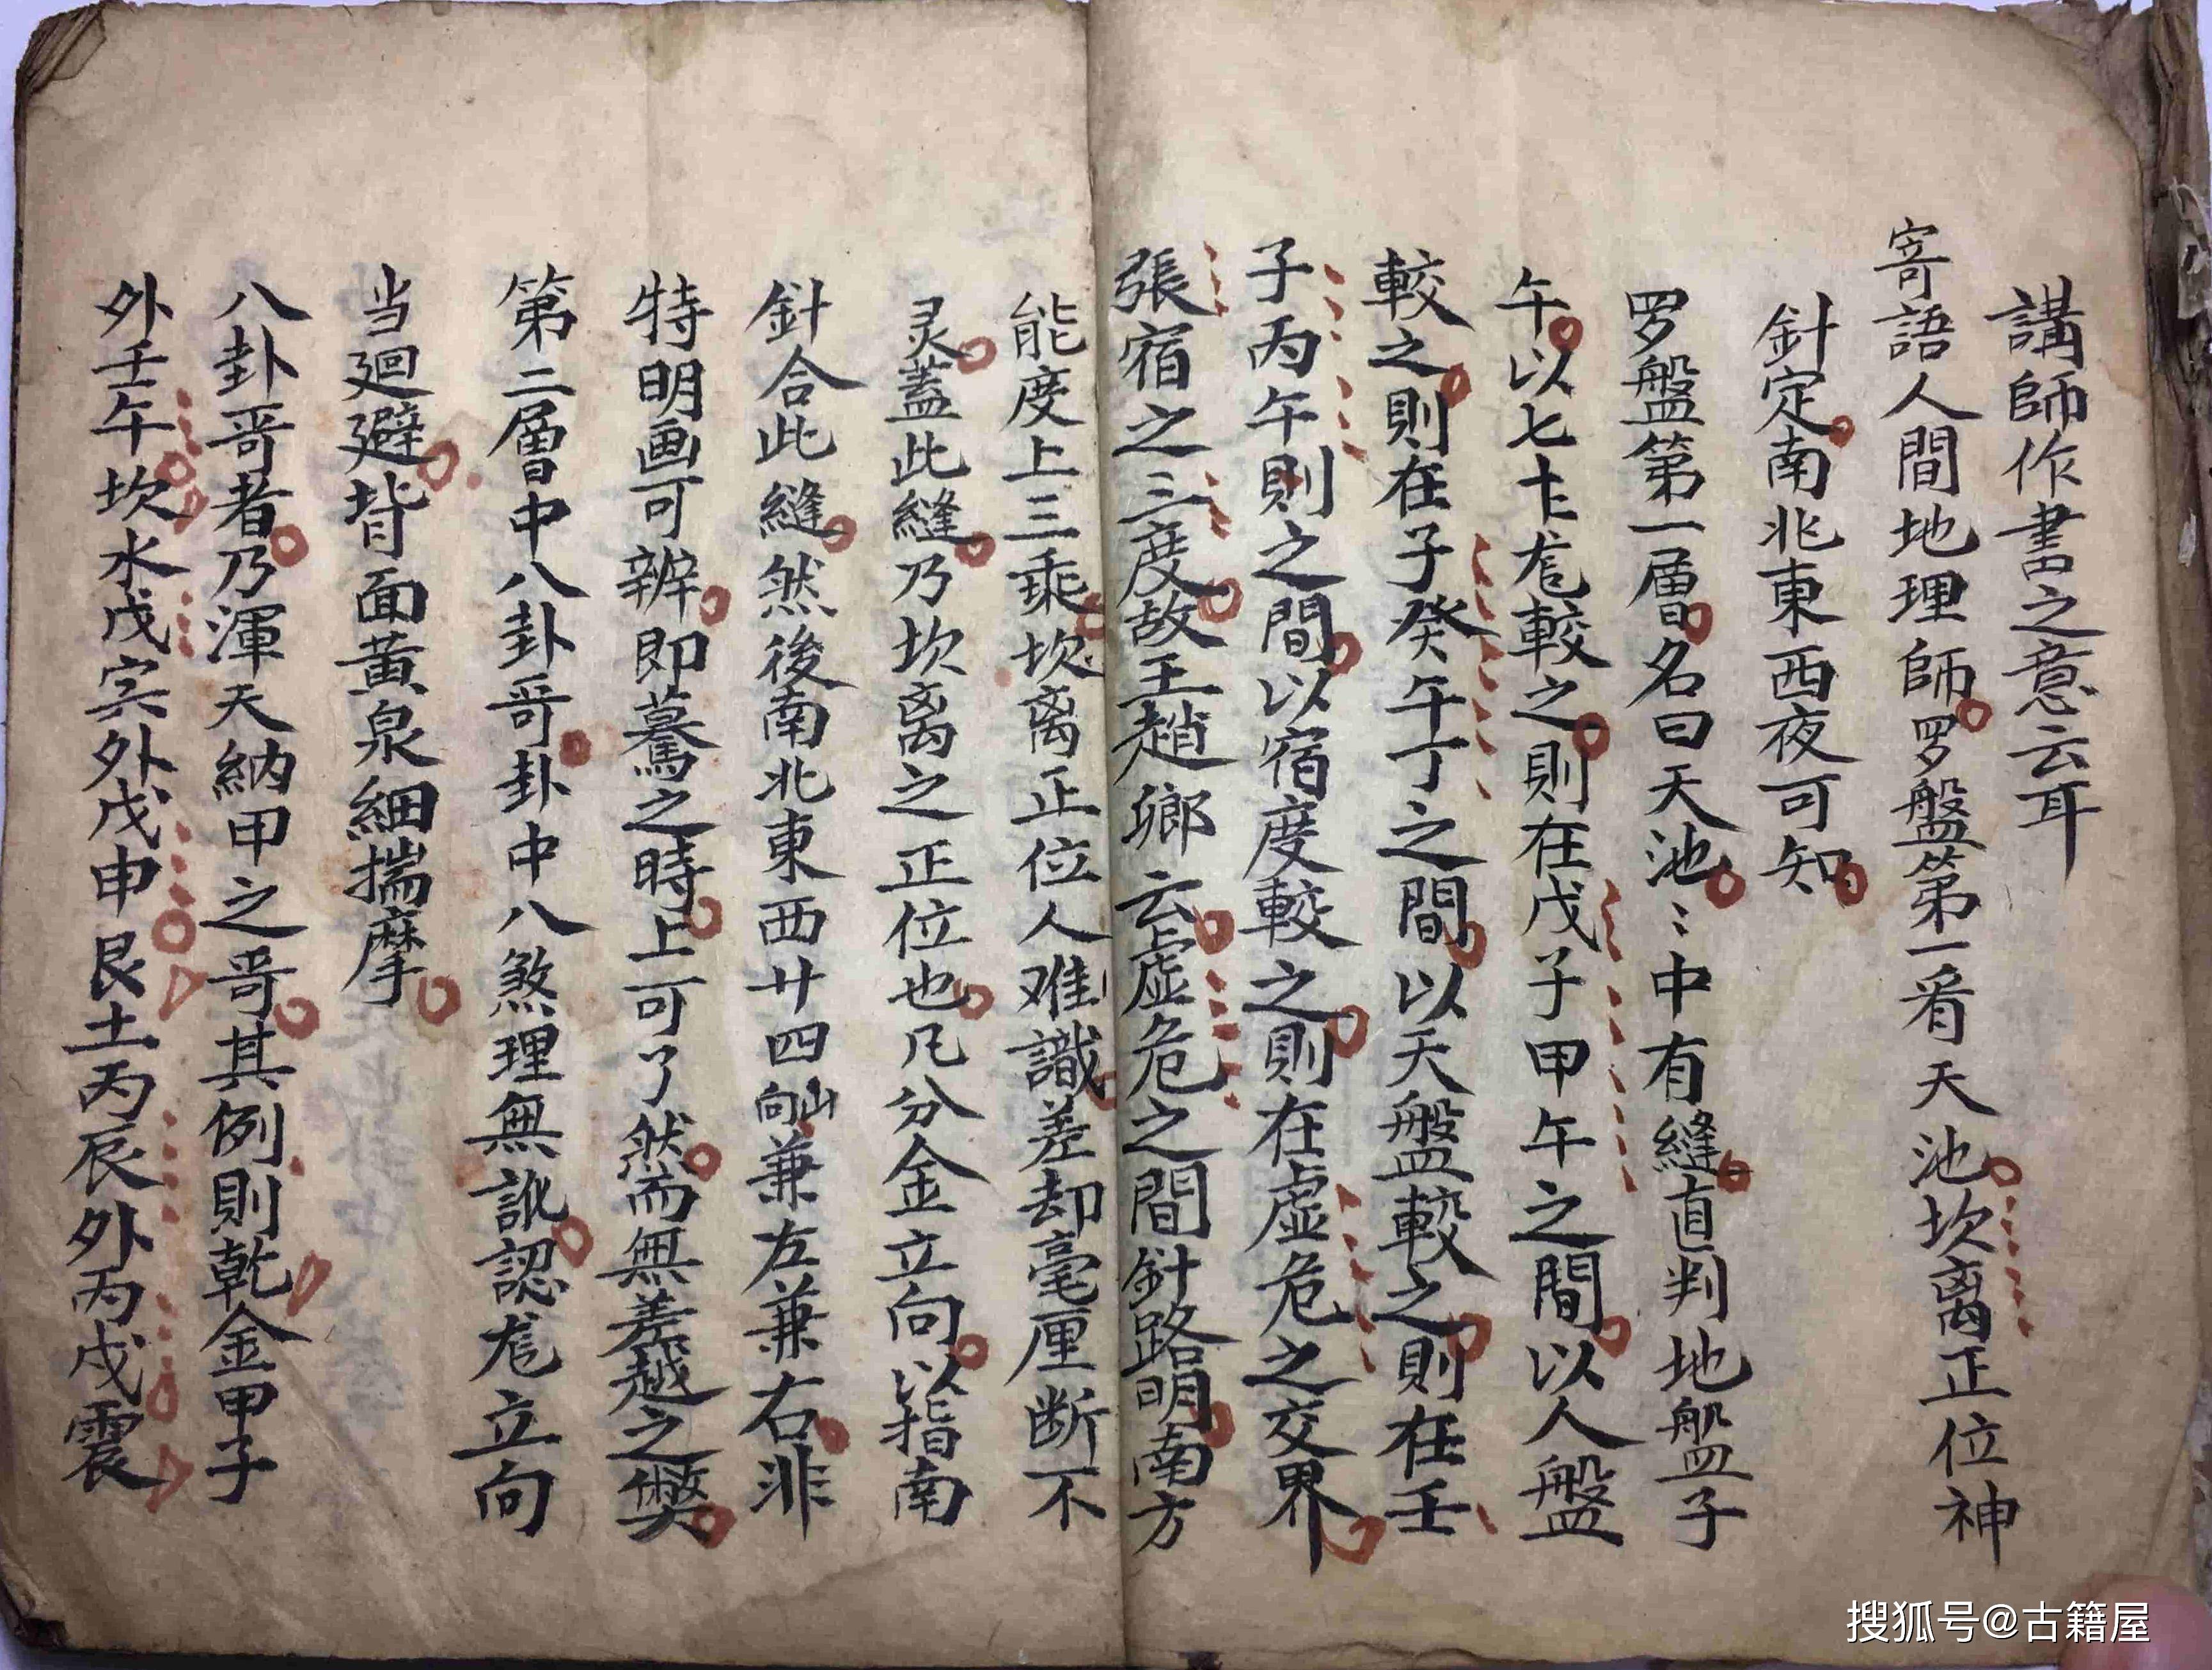 講師作書之意云耳
寄語人間地理師罗盤第一看天池坎离正位神
針定南北東西夜可知
罗盤第一層名曰天池〻中有縫直判地盤子
午以七十龙較之則在戊子甲午之間以人盤
較之則在子癸午丁之間以天盤較之則在壬
子丙午則之間以宿度較之則在虛危之交界
張宿之三度故王趙鄉云虛危之間針路明南方
能度上三乘坎离正位人难識差却毫厘断不
灵蓋此縫乃坎离之正位也凡分金立向以指南
針合此縫然後南北東西廿四山向兼左兼右非
特明画可辨即驀之時上可了然而無差越之弊
第二層中八卦哥卦中八煞理無訛認龙立向
当廻避背面黃泉細揣摩
八卦哥者乃渾天納甲之哥其例則乾金甲子
外壬午坎水戊寅外戊申艮土丙辰外丙戌震
搜狐号@古籍屋